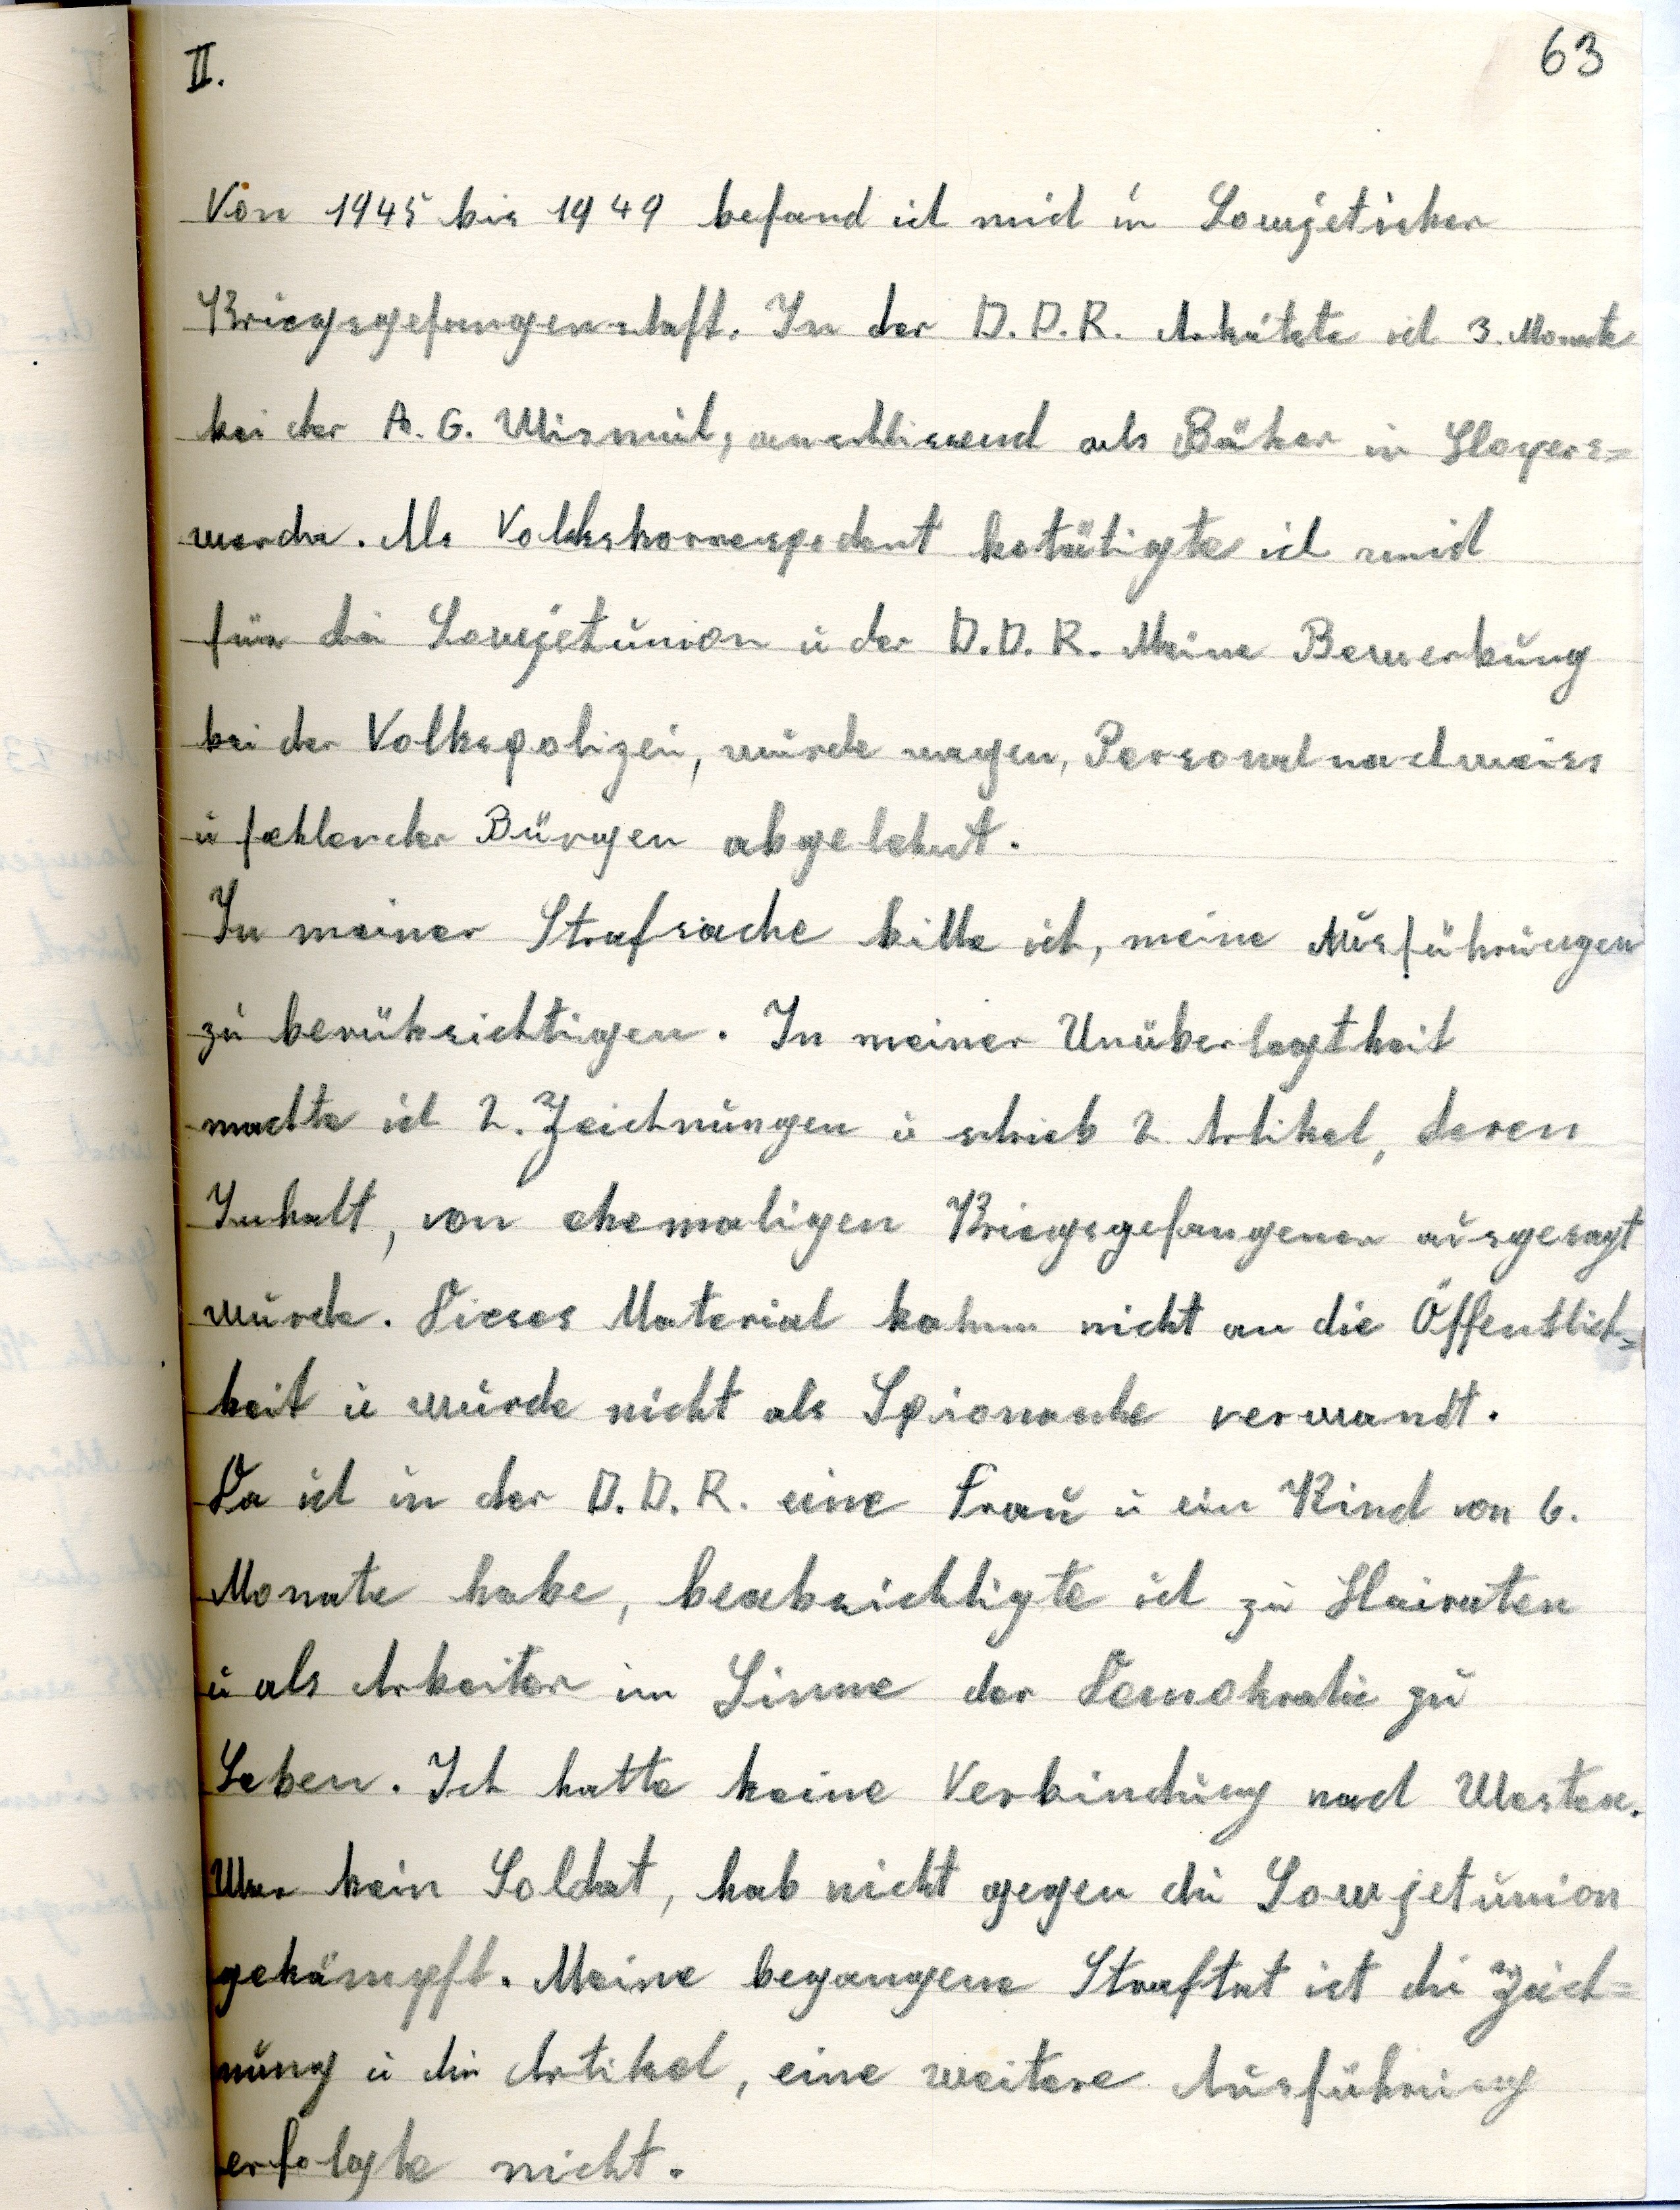 II.
63
Von 1945 bis 1949 befand ich mich in Sowjetischer
Kriegsgefangenschaft. In der D.D.R. Arbeitete ich 3. Monate
bei der A.G. Wismut, anschlissend als Bäker in Hoyers=
werda. Als Volkskorrespodent betätigte ich mich
für die Sowjetunion u der D.D.R. Meine Bewerbung
bei der Volkspolizei, wurde wegen, Personalnachweiss
u fehlender Bürgen abgelehnt.
In meiner Strafsache bitte ich, meine Ausführungen
zu berüksichtigen. In meiner Unüberlegtheit
machte ich 2. Zeichnungen u schrieb 2 Artikel, deren
Inhalt, von ehemaligen Kriegsgefangener ausgesagt
wurde. Dieses Material kahm nicht an die Öffentlich=
keit u wurde nicht als Spionache verwandt.
Da ich in der D.D.R. eine Frau u ein Kind von 6.
Monate habe, beabsichtigte ich zu Heiraten
u als Arbeiter im Sinne der Demokratie zu
Leben. Ich hatte keine Verbindung nach Westen.
War kein Soldat, hab nicht gegen die Sowjetunion
gekämpft. Meine begangene Straftat ist die Zeich=
nung u die Artikel, eine weitere Ausführung
erfolgte nicht.